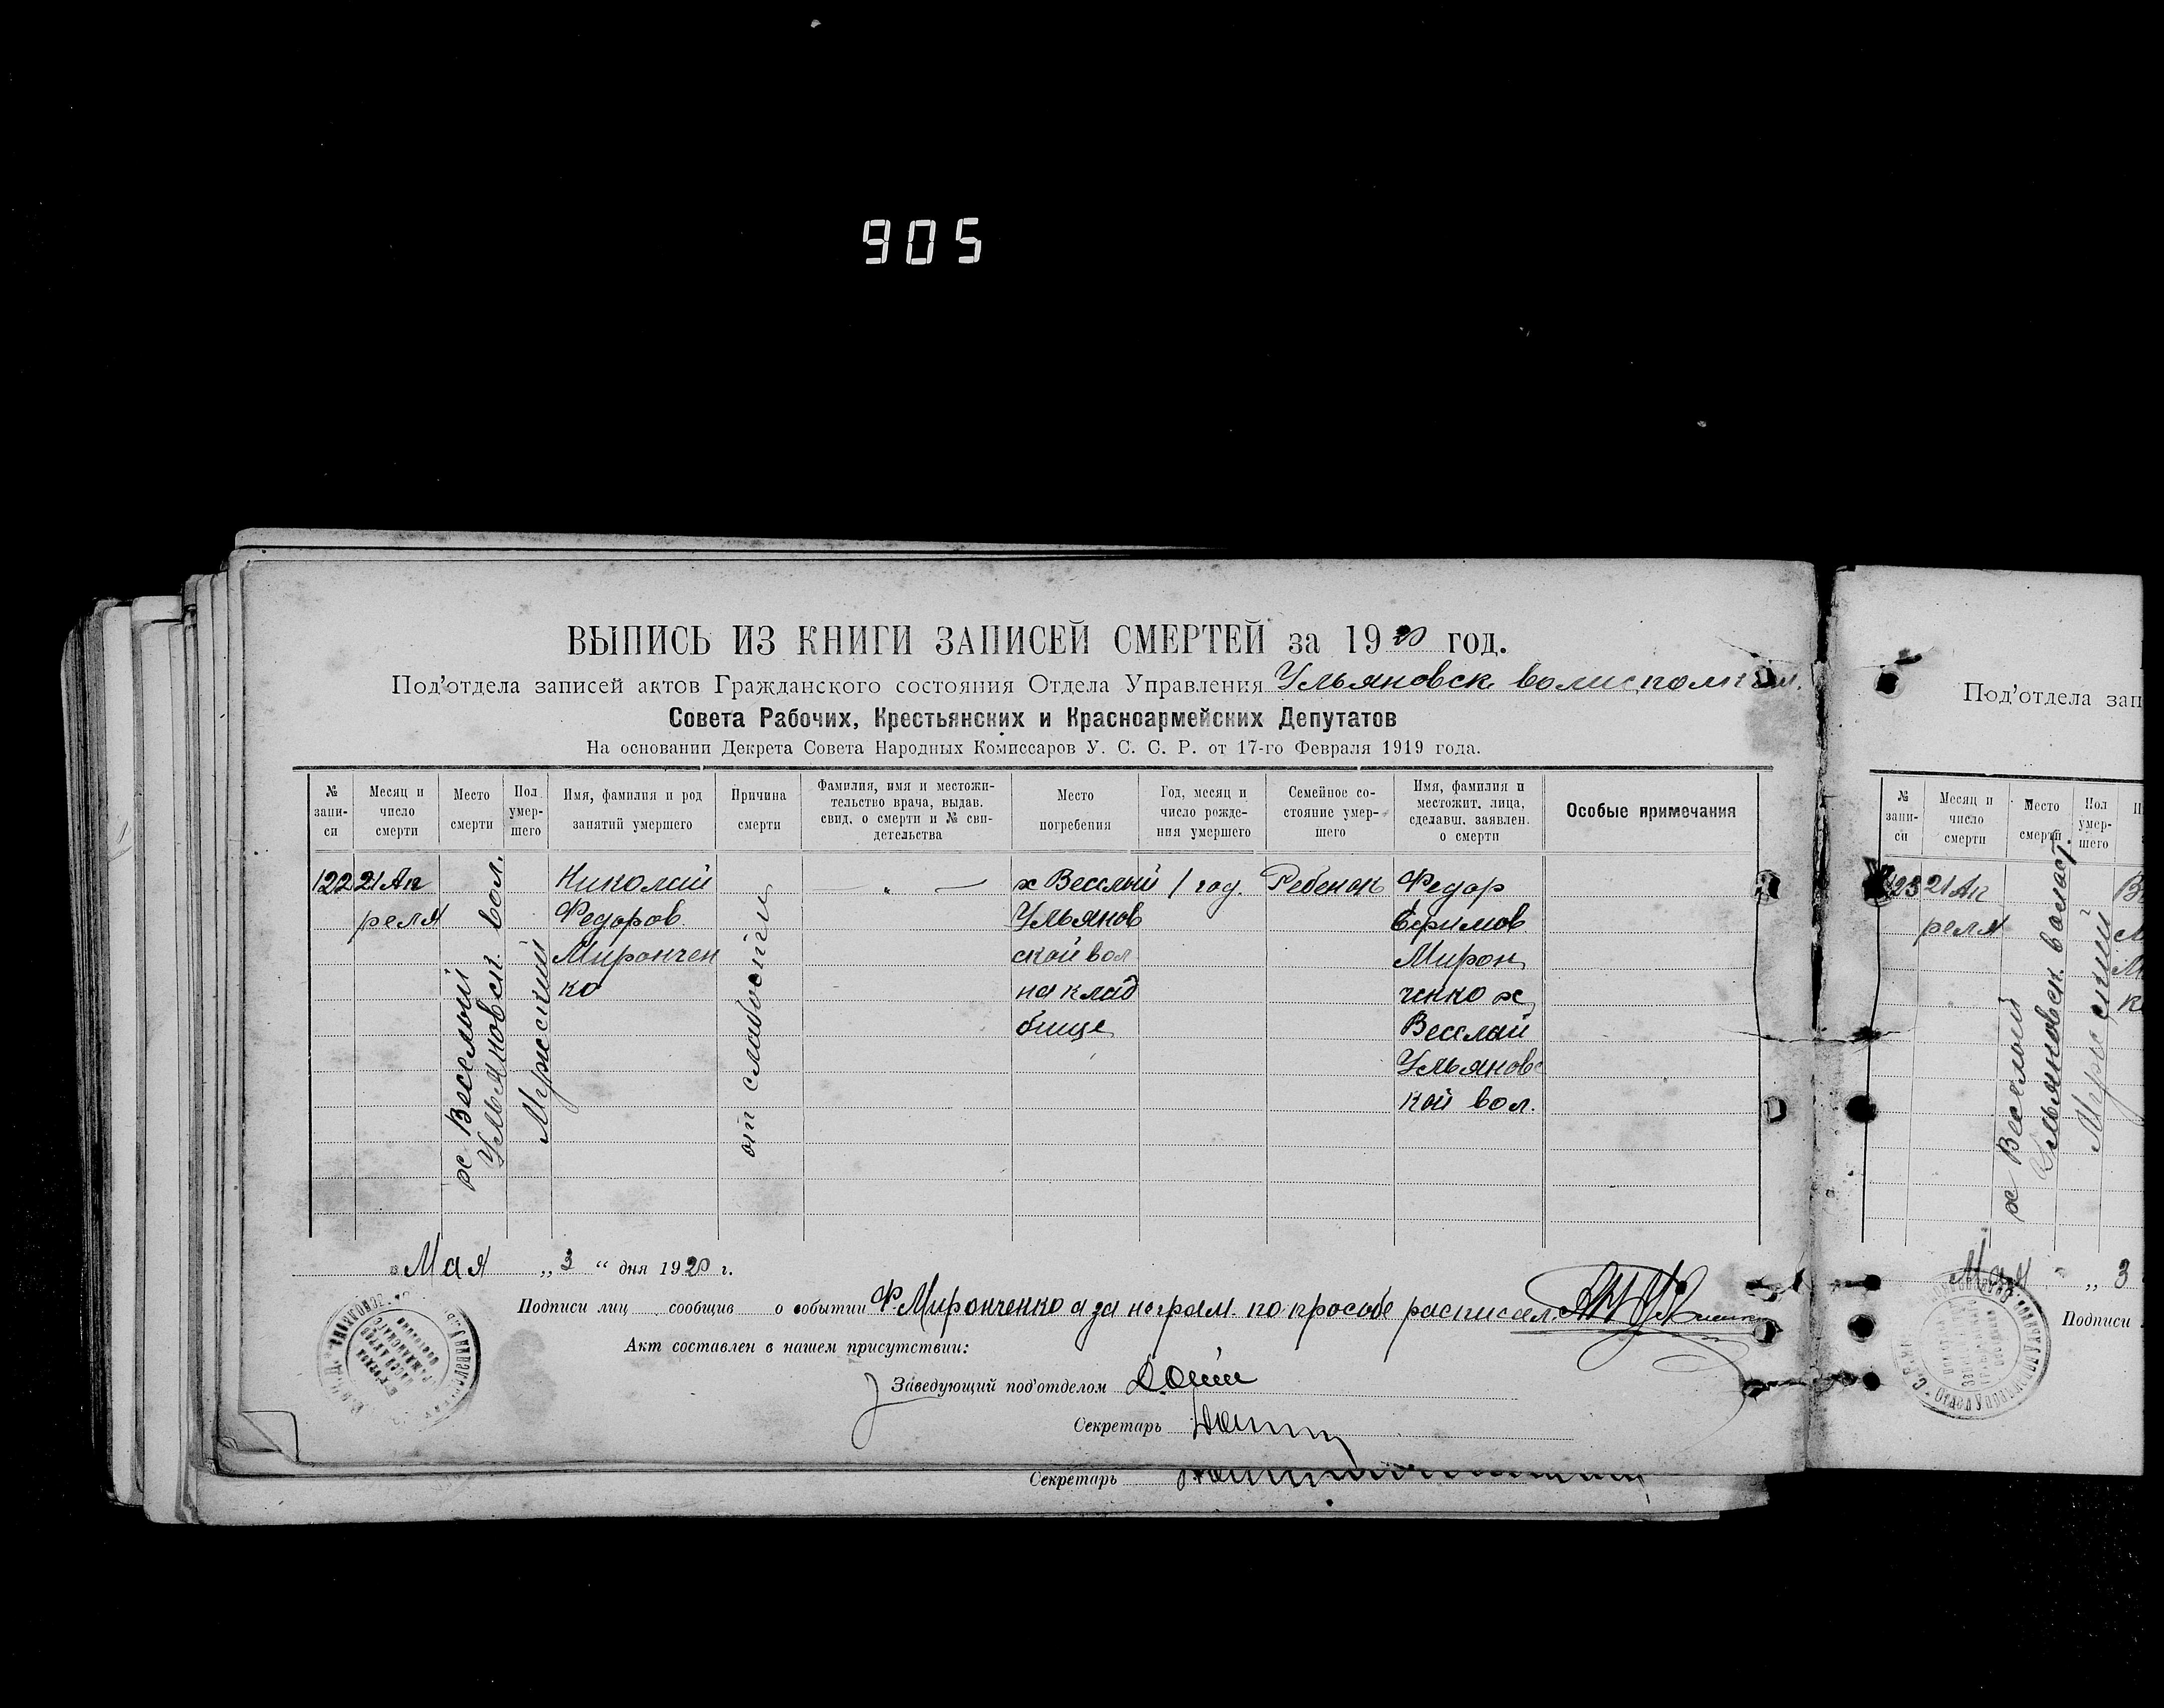 905
ВЫПИСЬ ИЗ КНИГИ ЗАПИСЕЙ СМЕРТЕЙ за 1920 год.
Под'отдела записей актов Гражданского состояния Отдела Управления Ульяновск.
Совета Рабочих, Крестьянских и Красноармейских Депутатов
На основании Декрета Совета Народных Комиссаров У. С. С. Р. от 17-го Февраля 1919 года.
№ запи-
си
Месяц и
число
смерти
Место
смерти
Пол
умер-
шего
Имя, фамилия и род
занятий умершего
Причина
смерти
Фамилия, имя и местожи-
тельство врача, выдав.
свид. о смерти и № сви-
детельства
Место
погребения
Год, месяц и
число рожде-
ния умершего
Семейное со-
стояние умер-
шего
Имя, фамилия и
местожит. лица,
сделавш. заявлен.
о смерти
Особые примечания
122
21 Ап
реля
х Веселый
Ульяновск. вол.
Мужской
Николай
Федоров
Мирончен
ко
от слабости
" —
х Веселый
Ульянов
ской вол
на клад
бище
1 год.
Ребенок
Федор
Ефимов
Мирон
ченко х
Веселай
Ульяновс
кой вол.
Мая „ 3 “ дня 1920 г.
Подписи лиц сообщив о событии Ф. Мирончeнко а за неграм. по прособе расписал.
Акт составлен в нашем присутствии:
Заведующий под'отделом
Секретарь
Секретарь
Под'отдела зап
№
запи-
си
Месяц и
число
смерти
Место
смерти
Пол
умер-
шего
123
21 Ап
реля
х Веселый
Ульяновск. воласт.
Мужский
Мая „ 3
Подписи